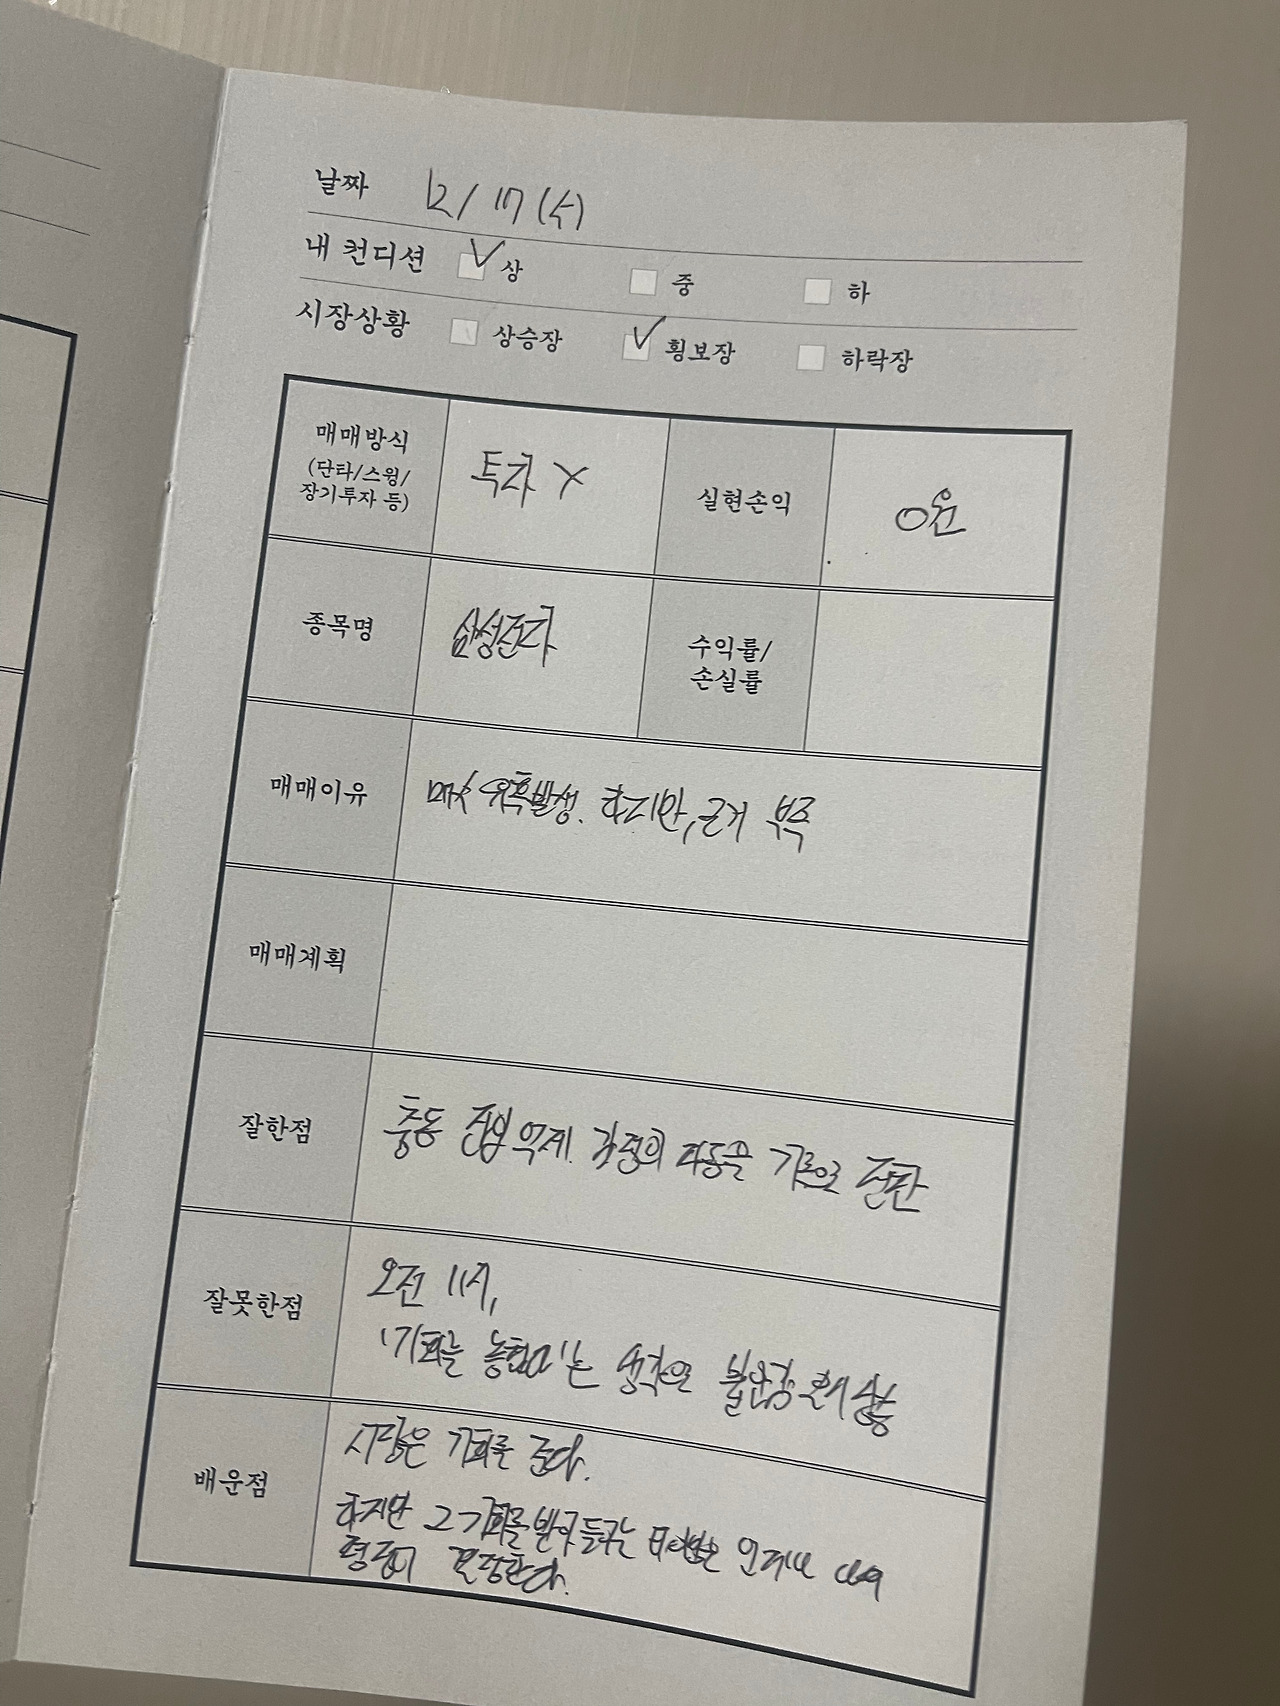 날짜 12/17(수)
내 컨디션 ✓ 상 중 하
시장상황 상승장 ✓ 횡보장 하락장
매매방식
(단타/스윙/
장기투자 등)
투자 X
실현손익
0원
종목명
삼성전자
수익률/
손실률
매매이유
매수 유혹발생. 하지만, 근거 부족
매매계획
잘한점
충동 진입 억제. 감정의 파동을 기록으로 전환
잘못한점
오전 11시,
'기회를 놓쳤다'는 생각으로 불안감 상승
배운점
시장은 기회를 준다.
하지만 그 기회를 받아들이는 방법은 언제나 나의
평정이 결정한다.